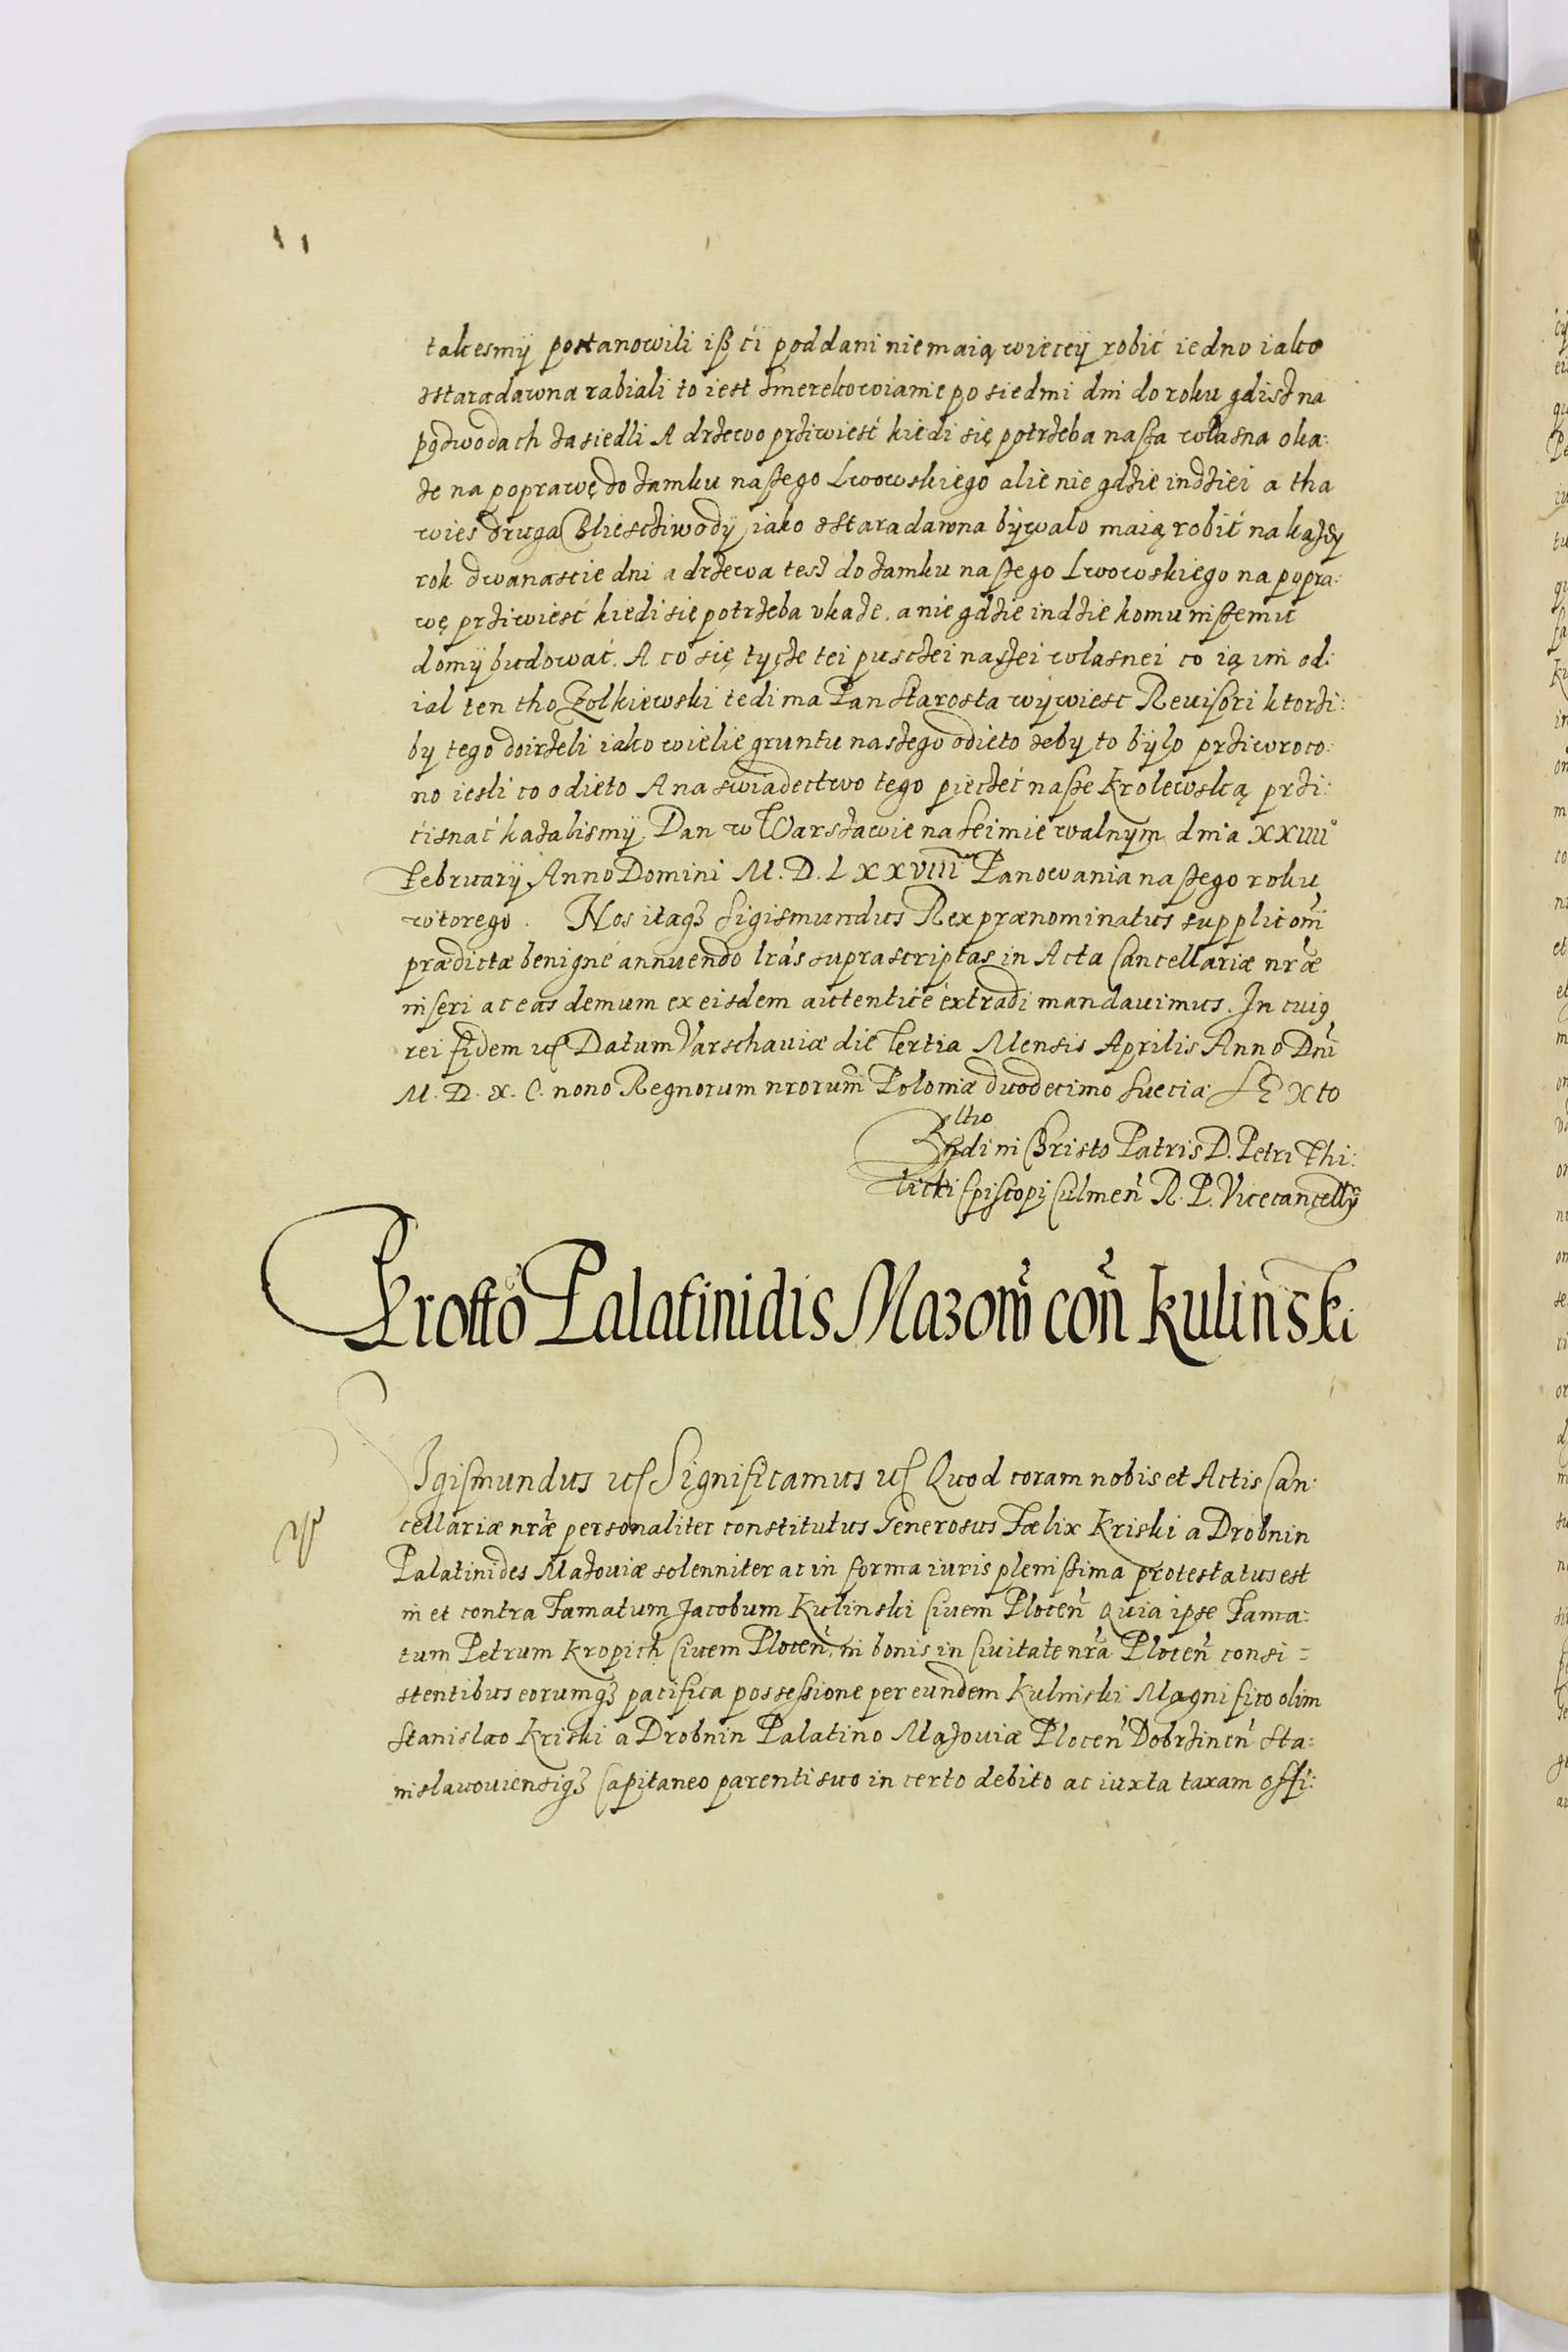 takesmÿ postanowili iß ći poddani nie maią wieceÿ robić iedno iako
zstaradawna rabiali to iest Smerekowianie po siedmi dni do roku gdisz na
podwodach zasiedli A drzewo prziwiesć kiedi się potrzeba nasza własna oka:
że na poprawę do zamku naszego Lwowskiego alie nie gdzie indziei a tha
wieś druga Bliescziwodÿ iako zstaradawna bÿwalo maią robić na każdy
rok dwanascie dni a drzewa tesz do zamku naszego Lwowskiego na popra:
wę prziwiesć kiedi się potrzeba vkaże. a nie gdzie indzie komu inszemu
domÿ budować. A co się tycze tei pusczei naszei wlasnei co ią im od:
ial ten tho Zolkiewski tedi ma Pan Starosta wÿwiesc Reuisori ktorzi:
by tego doirzeli iako wielie gruntu naszego odieto żeby to bÿlo prziwroco:
no iesli co odieto A na swiadectwo tego piecżeć nasze Krolewską przi:
ćisnać kazalismÿ. Dan w Warszawie na Seimie walnÿm dnia XXIIII°
Februarÿ Anno Domini M. D. LXXVIII Panowania naszego roku
wtorego. Nos itaqȝ Sigismundus Rex prænominatus supplicõni
prædictæ benigné annuendo lrãs suprascriptas in Acta Cancellariæ nrãe
inseri ac eas demum ex eisdem autentice extradi mandauimus. In cuiq
rei fidem ꝛc̃ Datum Varschauiæ die Tertia Mensis Aprilis Anno Dnĩ
M. D. X. C. nono Regnorum nrorum̃ Poloniæ duodecimo Sueciæ SEXto
Rltio
Rndi in Christo Patris D. Petri Thi:
licki Episcopi Culmeñ R. P. Vicecancellÿ
Protto Palatinidis Mazom̃ coñ Kulinski
Sigismundus ꝛc̃ Significamus ꝛc̃ Quod coram nobis et Actis Can:
cellariæ nrãe personaliter constitutus Generosus Fœlix Kriski a Drobnin
Palatinides Mazouiæ solenniter ac in forma iuris plenissima protestatus est
in et contra Famatum Jacobum Kulinski Ciuem Ploceñ Quia ipse Fama:
tum Petrum Kropich Ciuem Ploceñ, in bonis in Ciuitate nrã Ploceñ consi=
stentibus eorumqȝ pacifica possessione per eundem Kulinski Magnifico olim
Stanislao Kriski a Drobnin Palatino Mazouiæ Ploceñ Dobrzineñ Sta:
nislawouiensiqȝ Capitaneo parenti suo in certo debito ac iuxta taxam offi: